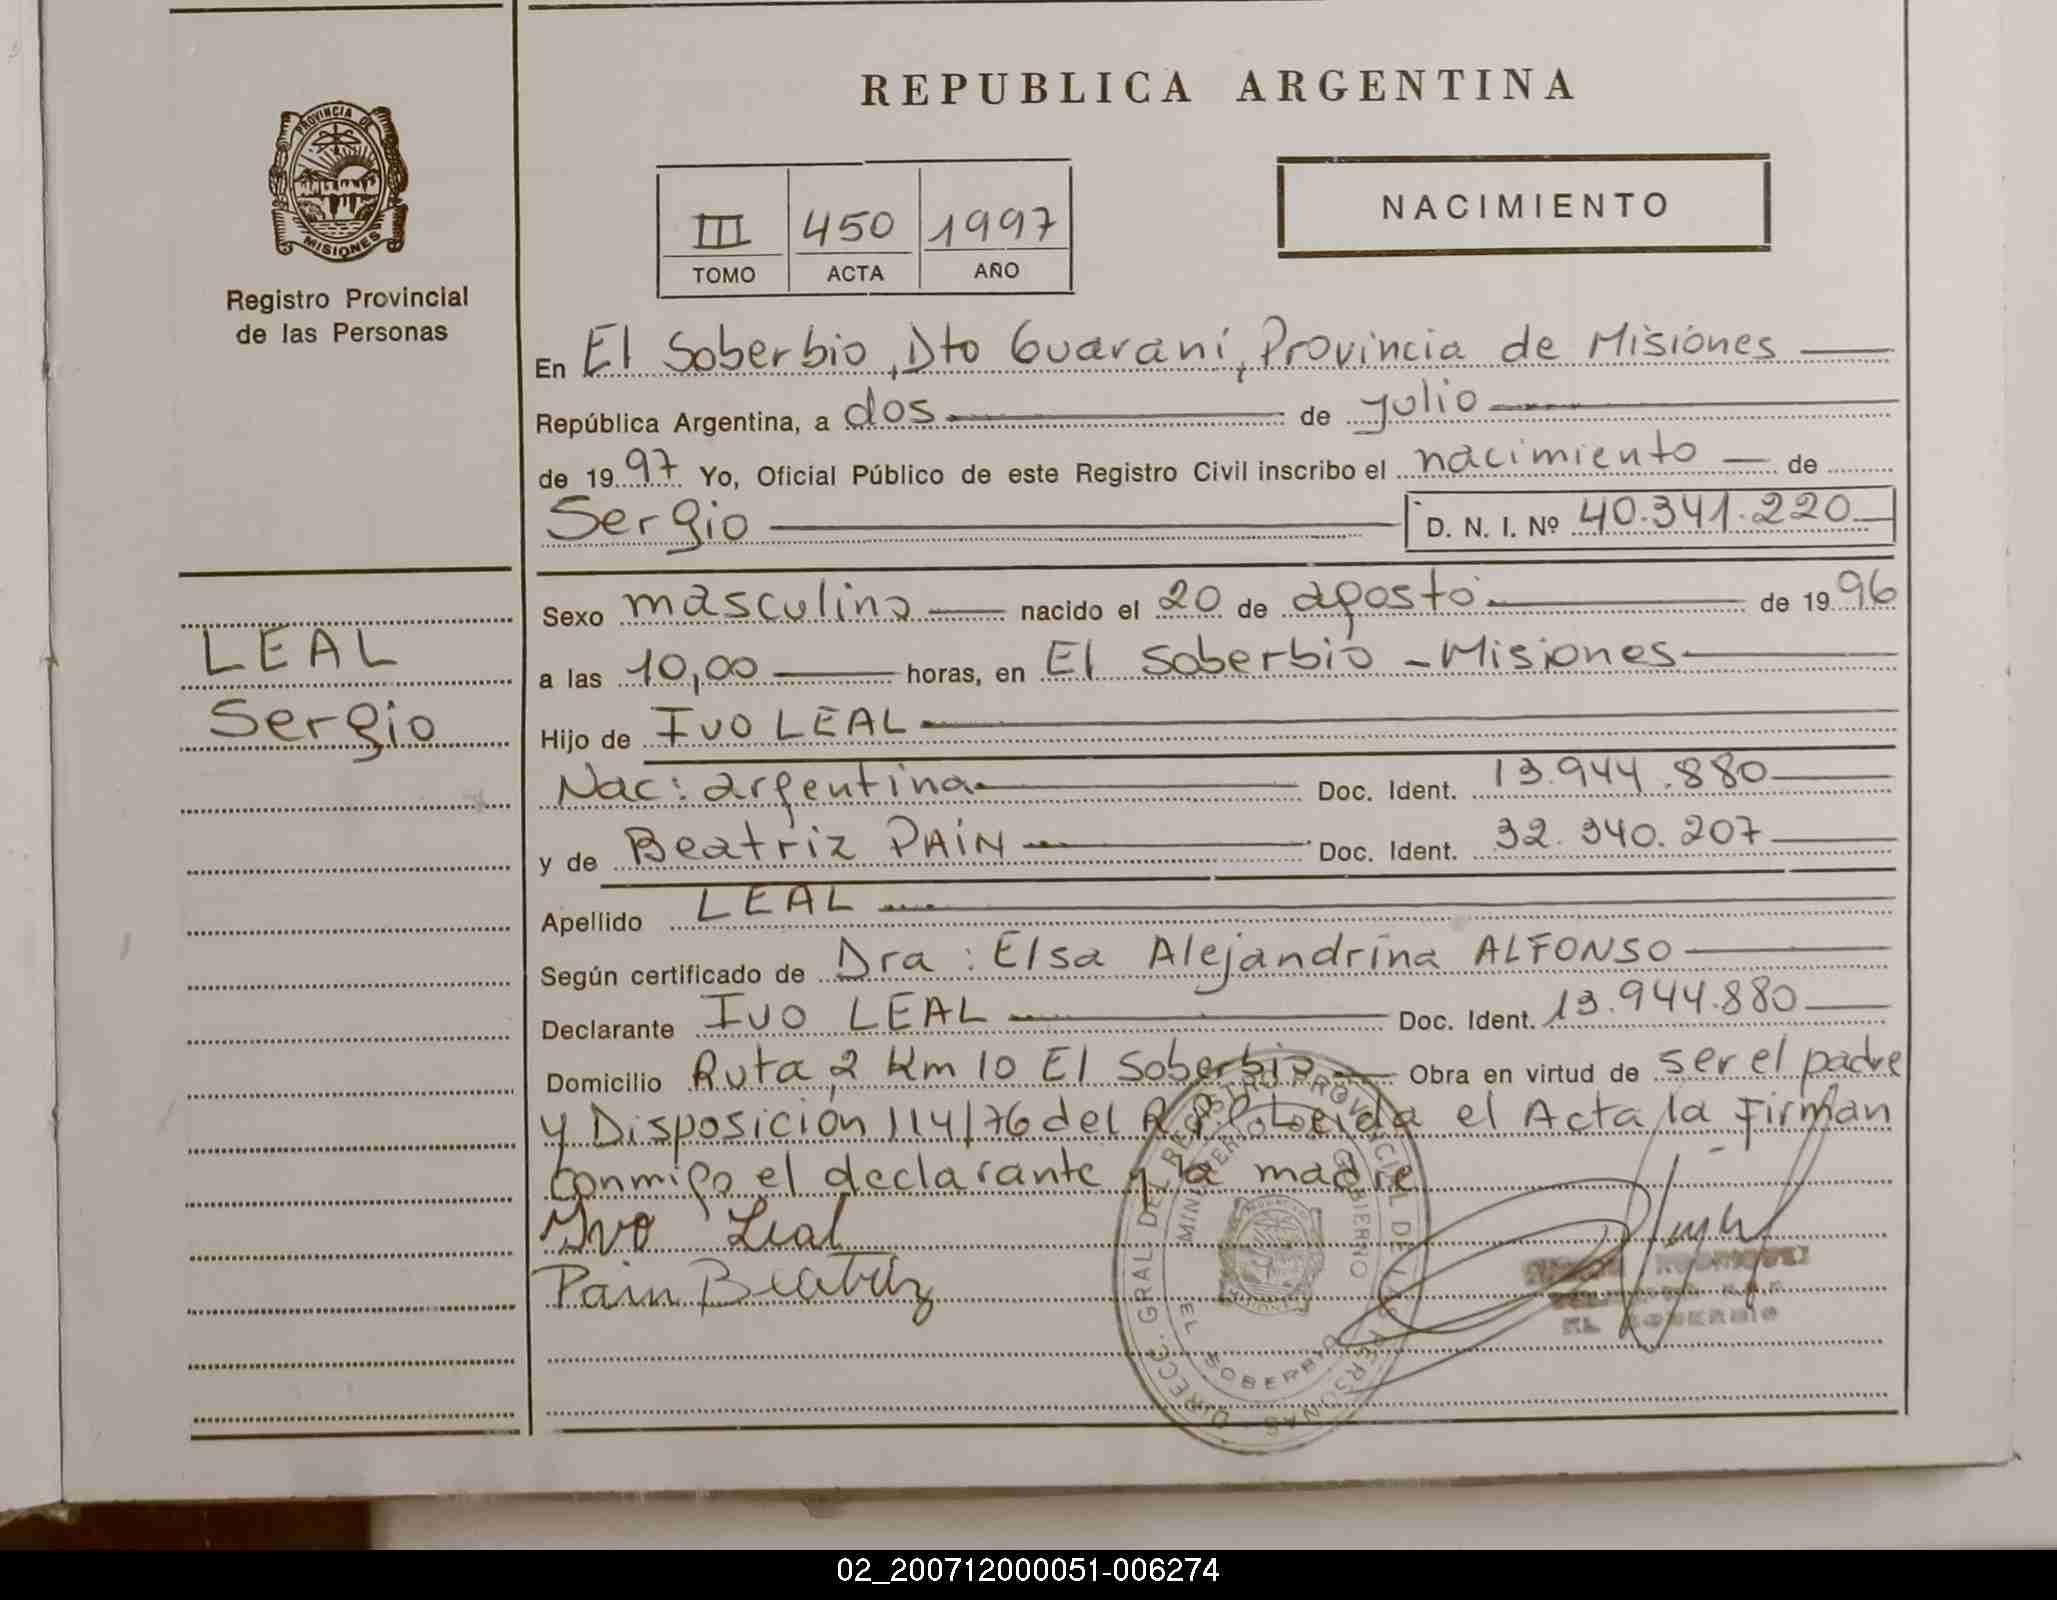 REPUBLICA ARGENTINA
PROVINCIA DE
MISIONES
Registro Provincial
de las Personas
III 450 1997
TOMO ACTA AÑO
NACIMIENTO
En El Soberbio, Dto Guaraní, Provincia de Misiones
República Argentina, a dos de julio
de 1997 Yo, Oficial Público de este Registro Civil inscribo el nacimiento de
Sergio D. N. I. Nº 40.341.220
LEAL
Sergio
Sexo masculino nacido el 20 de agosto de 1996
a las 10,00 horas, en El Soberbio - Misiones
Hijo de Ivo LEAL
Nac: argentina Doc. Ident. 13.944.880
y de Beatriz PAIN Doc. Ident. 32.340.207
Apellido LEAL
Según certificado de Dra: Elsa Alejandrina ALFONSO
Declarante Ivo LEAL Doc. Ident. 13.944.880
Domicilio Ruta 2 Km 10 El Soberbio Obra en virtud de ser el padre
y Disposición 114/76 del R.P.P. Leida el Acta la Firman
conmigo el declarante y la madre
Ivo Leal
Pain Beatriz
DIRECC. GRAL DEL REGISTRO PROVINCIAL DE LAS PERSONAS
GOBIERNO
EL SOBERBIO
RODRIGUEZ
EL SOBERBIO
02_200712000051-006274